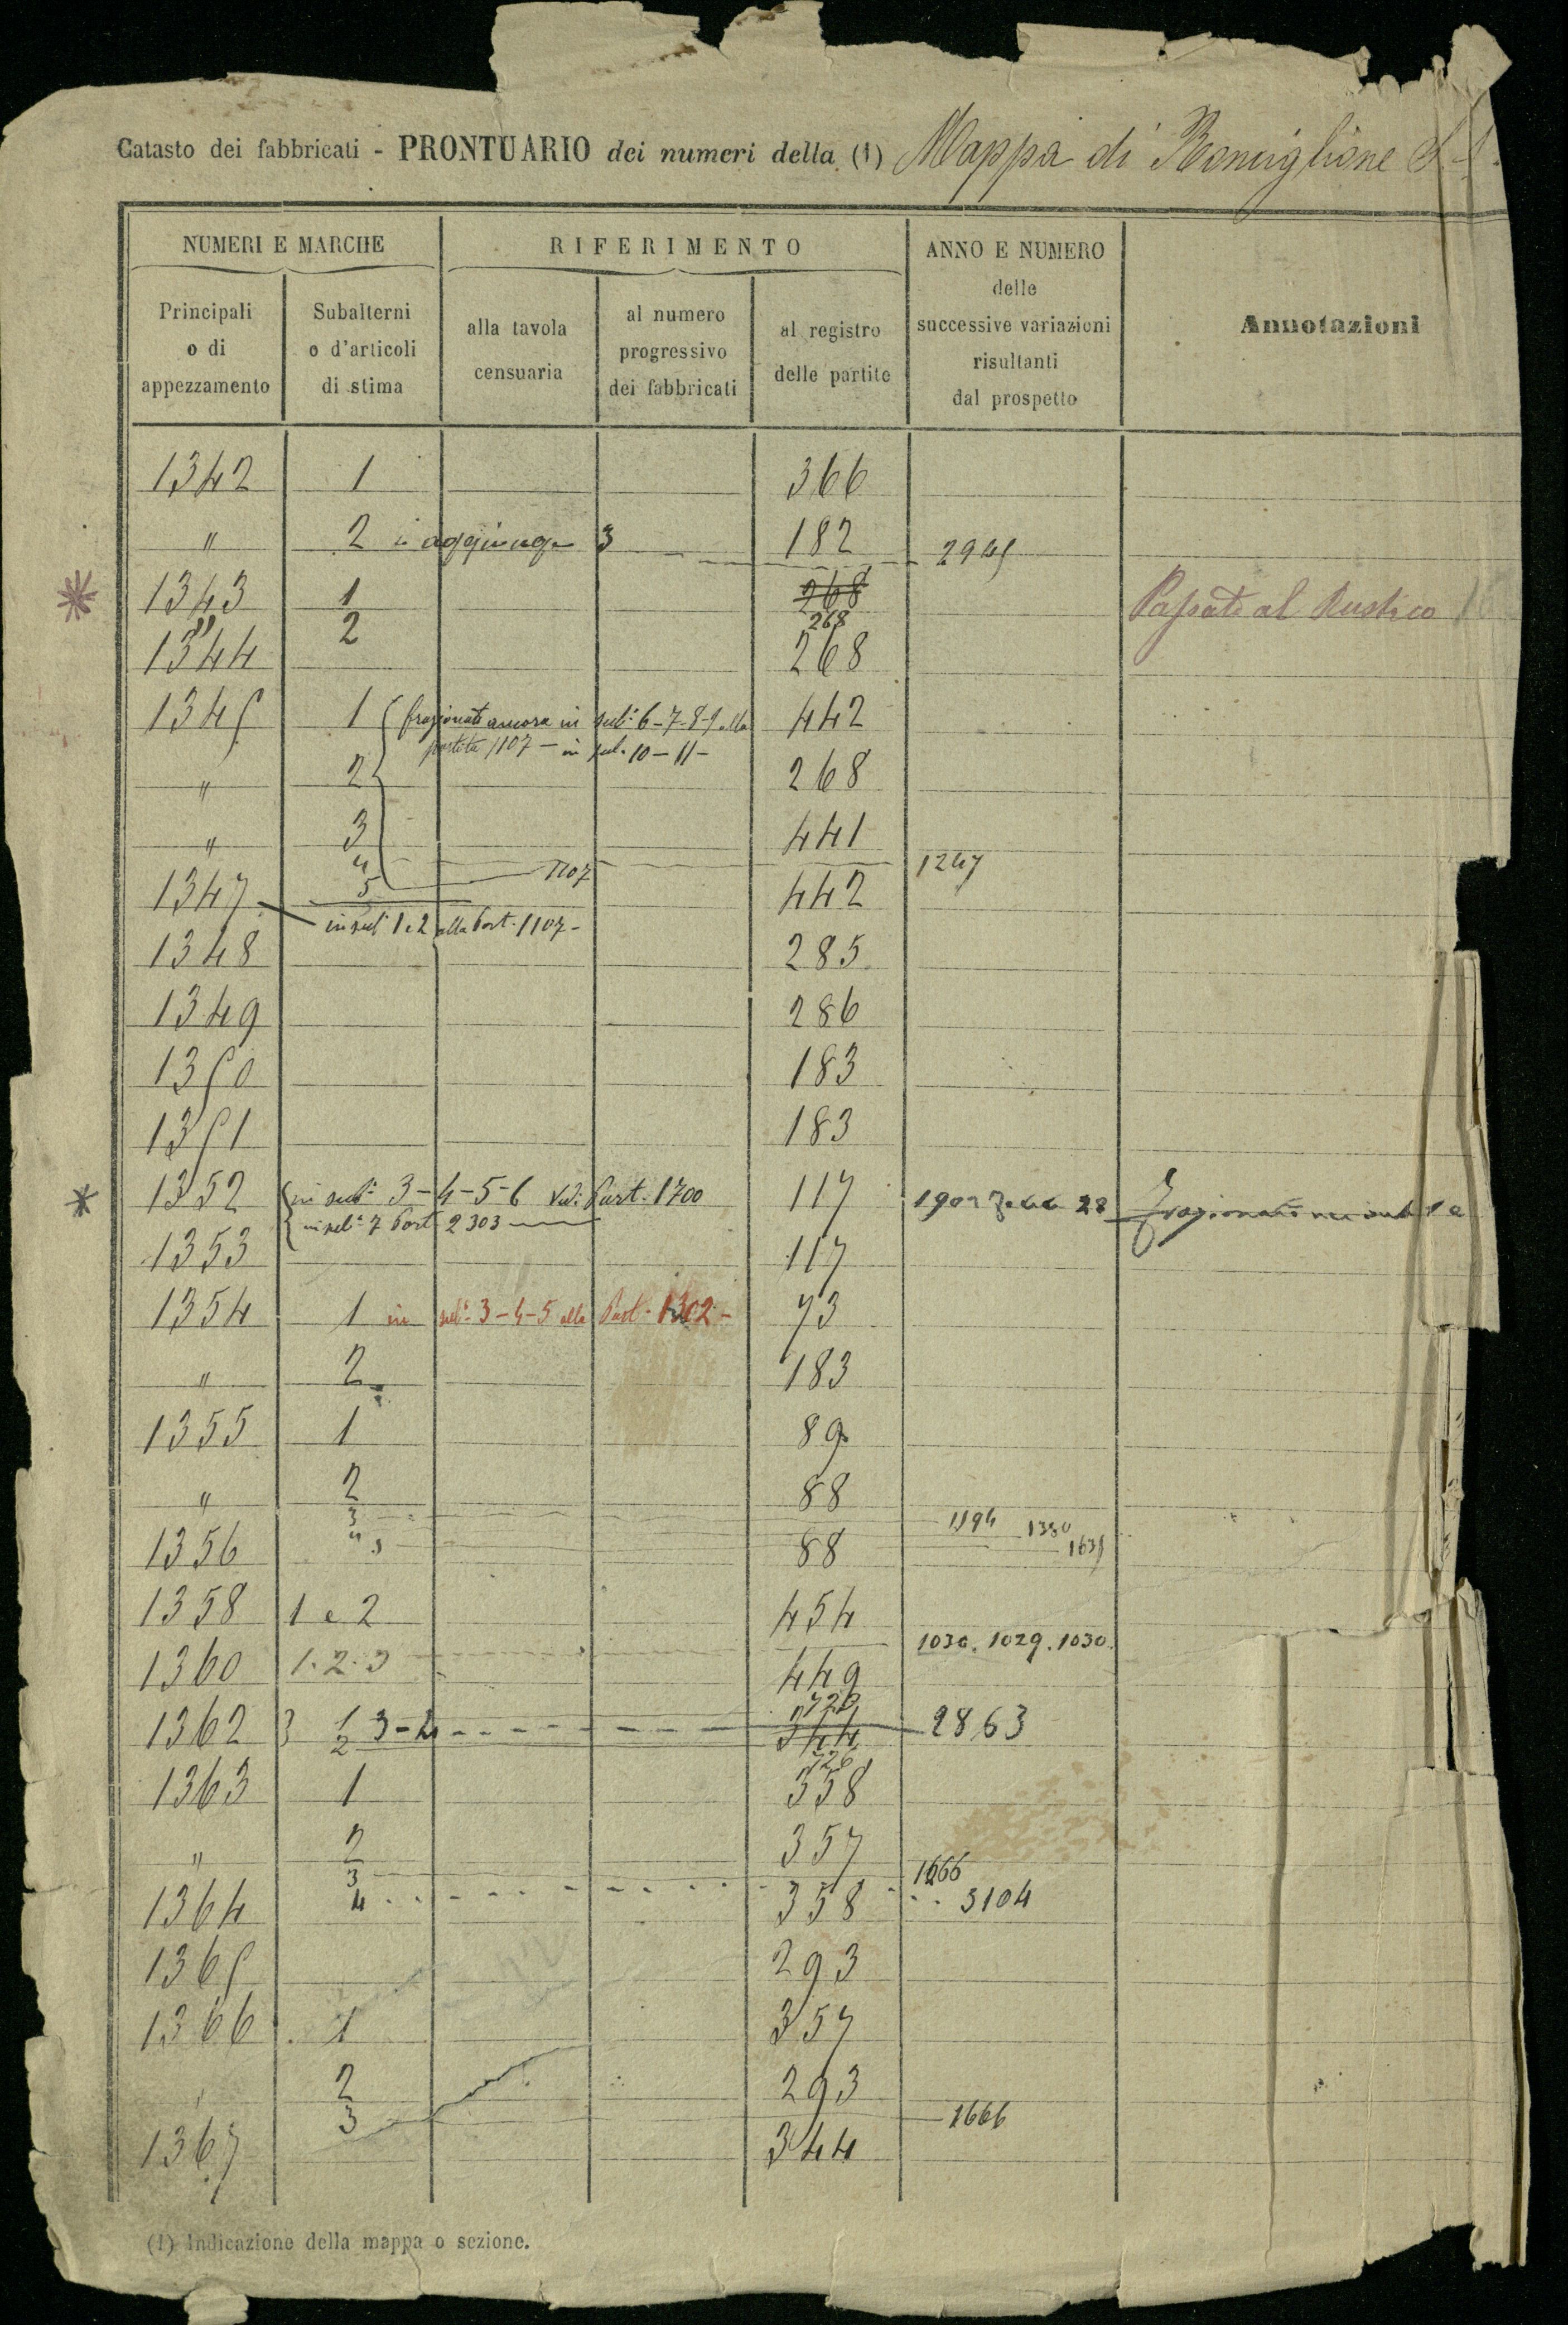 Catasto dei fabbricati - PRONTUARIO dei numeri della (1) Mappa di Ronciglione S. I.
NUMERI E MARCHE
RIFERIMENTO
ANNO E NUMERO
delle
successive variazioni
risultanti
dal prospetto
Annotazioni
Principali
o di
appezzamento
Subalterni
o d'articoli
di stima
alla tavola
censuaria
al numero
progressivo
dei fabbricati
al registro
delle partite
1342 1 366
" 2 aggiunge 3 182
1343 1 268 Passato al Rustico
" 2 268
1344 268
1345 1 frazionato ancora in sub. 6-7-8-9 alla 442
partita 1107 - in sub. 10-11-
" 2 268
" 3 441
4 1247
5 1107
1347 442
in sub 1 e 2 alla Part. 1107-
1348 285
1349 286
1350 183
1351 183
1352 in sub. 3-4-5-6 Vedi Part. 1700 117 28 frazionato
in sub. 7 Part 2303
1353 117
1354 1 in sub. 3-4-5 alla Part. 1302- 73
" 2 183
1355 1 89
" 2 88
3 1194 1380
4
1356 88
1358 1 e 2 454
1030. 1029. 1030.
1360 1. 2. 3 449
726
1362 3 1 3-4 344 2863
2 726
1363 1 358
" 2 357
3 1666
4 3104
1364 358
1365 293
1366 1 357
2 293
3 1666
1367 344
(1) Indicazione della mappa o sezione.